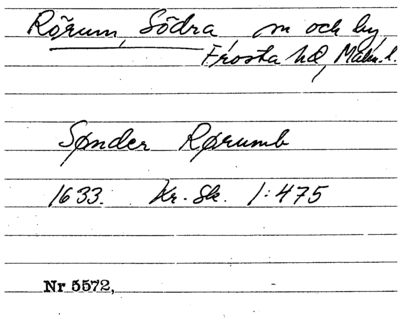 Rörum, Södra sn och by,
Frosta hd, Malm. l.
Sønder Rørumb
1633. Kr. Sk. 1:475
Nr 5572,